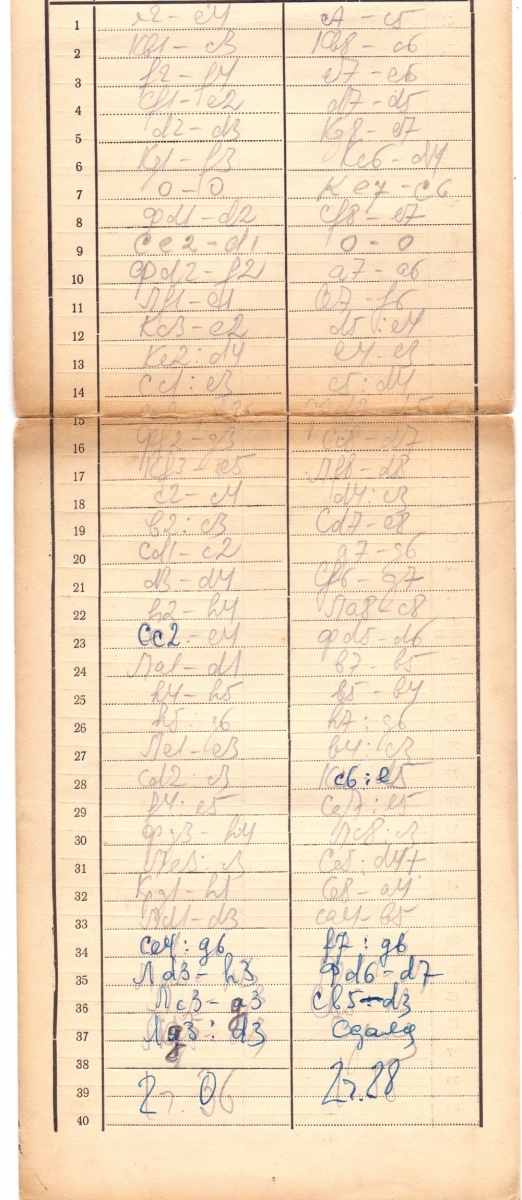 1 e2 – e4 c7 – c5
2 Кb1 – c3 Кb8 – c6
3 f2 – f4 e7 – e6
4 Сf1 – e2 d7 – d5
5 d2 – d3 Кg8 – e7
6 Кg1 – f3 Кc6 – d4
7 0 – 0 Кe7 – c6
8 Фd1 – d2 Сf8 – e7
9 Сe2 – d1 0 – 0
10 Фd2 – f2 a7 – a6
11 Лf1 – e1 Се7 – f6
12 Кc3 – e2 d5 : e4
13 Кe2 : d4 e4 – e3
14 Сc1 : e3 c5 : d4
15
16 Фf2 – g3 Сc8 – d7
17 Кf3 – e5 Лf8 – e8
18 c2 – c4 d4 : c3
19 в2 : c3 Сd7 – e8
20 Сd1 – c2 g7 – g6
21 d3 – d4 Сf6 – g7
22 h2 – h4 Ла8 – c8
23 Сc2 – e4 Фd5 – d6
24 Ла1 – d1 в7 – в5
25 h4 – h5 в5 – в4
26 h5 : g6 h7 : g6
27 Ле1 – e3 в4 : c3
28 Сd2 : c3 Кc6 : e5
29 f4 : e5 Сg7 : e5
30 Фg3 – h4 Лc8 : c3
31 Ле3 : c3 Се5 : d4+
32 Крg1 – h1 Се8 – a4
33 Лd1 – d3 Са4 – в5
34 Се4 : g6 f7 : g6
35 Лd3 – h3 Фd6 – d7
36 Лc3 – g3 Св5 – d3
37 Лg3 : d3 Сдался
38
39 2 ч. 06 2 ч. 28
40